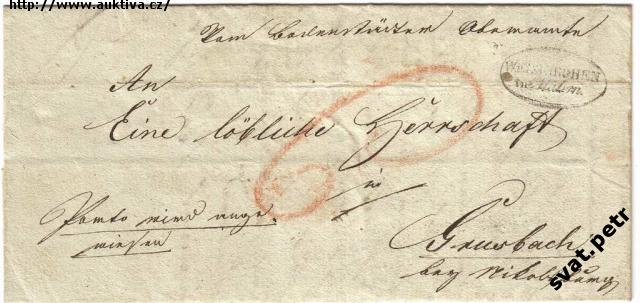 http://www.auktiva.cz/
Vom Bodenstädter Oberamte
WEISKIRCHEN
in Mähren.
An
Eine löbliche Herrschaft
in
Porto wird ange
wiesen
Grusbach
bey Nikolsburg
svat.petr